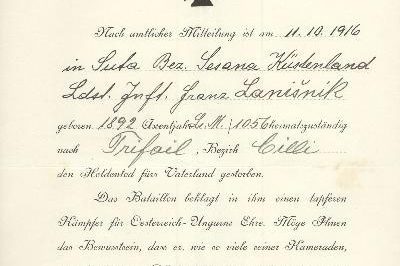 Nach amtlicher Mitteilung ist am 11. 10. 1916
in Suta Bez. Sesana Küstenland
Ldst. Inft. Franz Lanišnik
geboren 1892 Assentjahr L.M. 1056 heimatzuständig
nach Trifail, Bezirk Cilli
den Heldentod für Vaterland gestorben.
Das Bataillon beklagt in ihm einen tapferen
Kämpfer für Oesterreich-Ungarns Ehre. Möge Ihnen
das Bewusstsein, dass er, wie so viele seiner Kameraden,